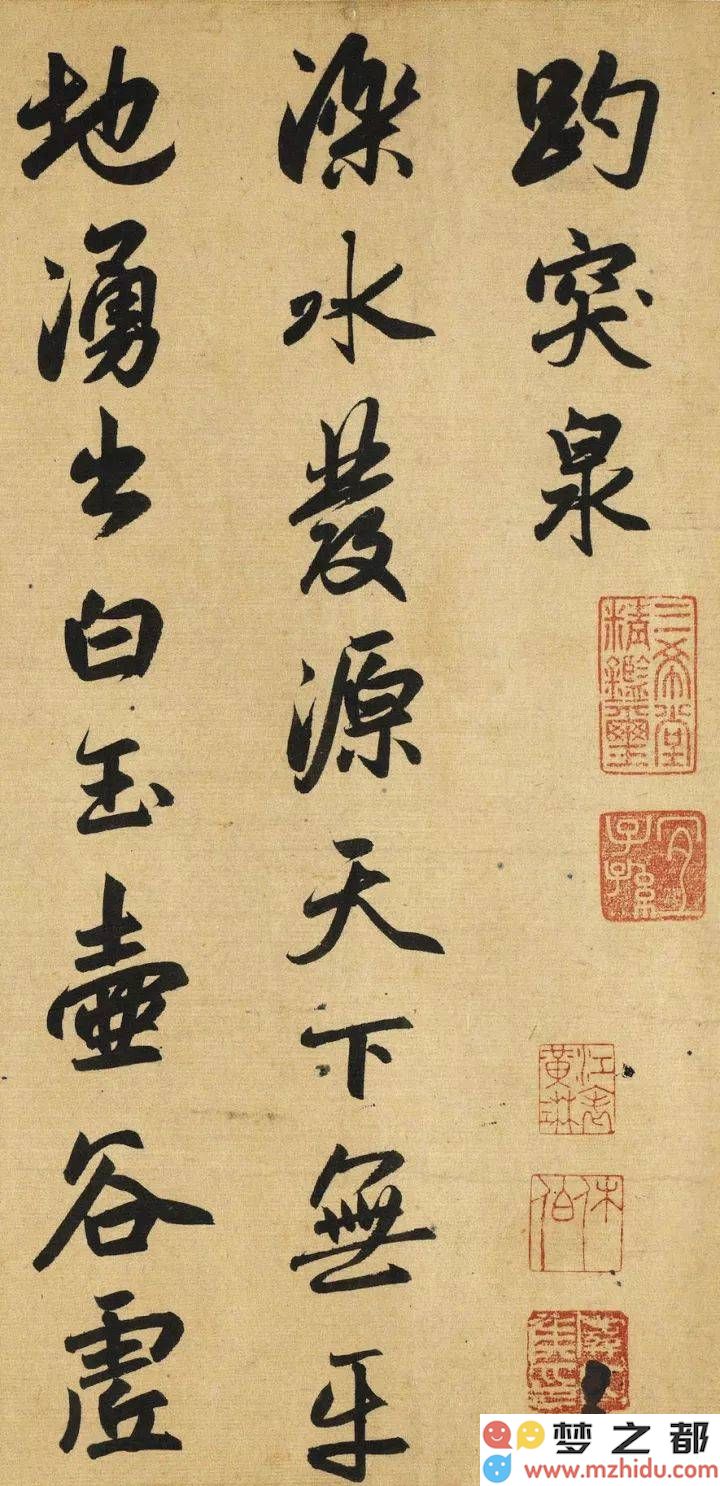 趵突泉
濼水發源天下無平
地湧出白玉壺谷虛
三希堂精鑑璽
宜子孫
江表黃琳
休伯
梦之都
www.mzhidu.com